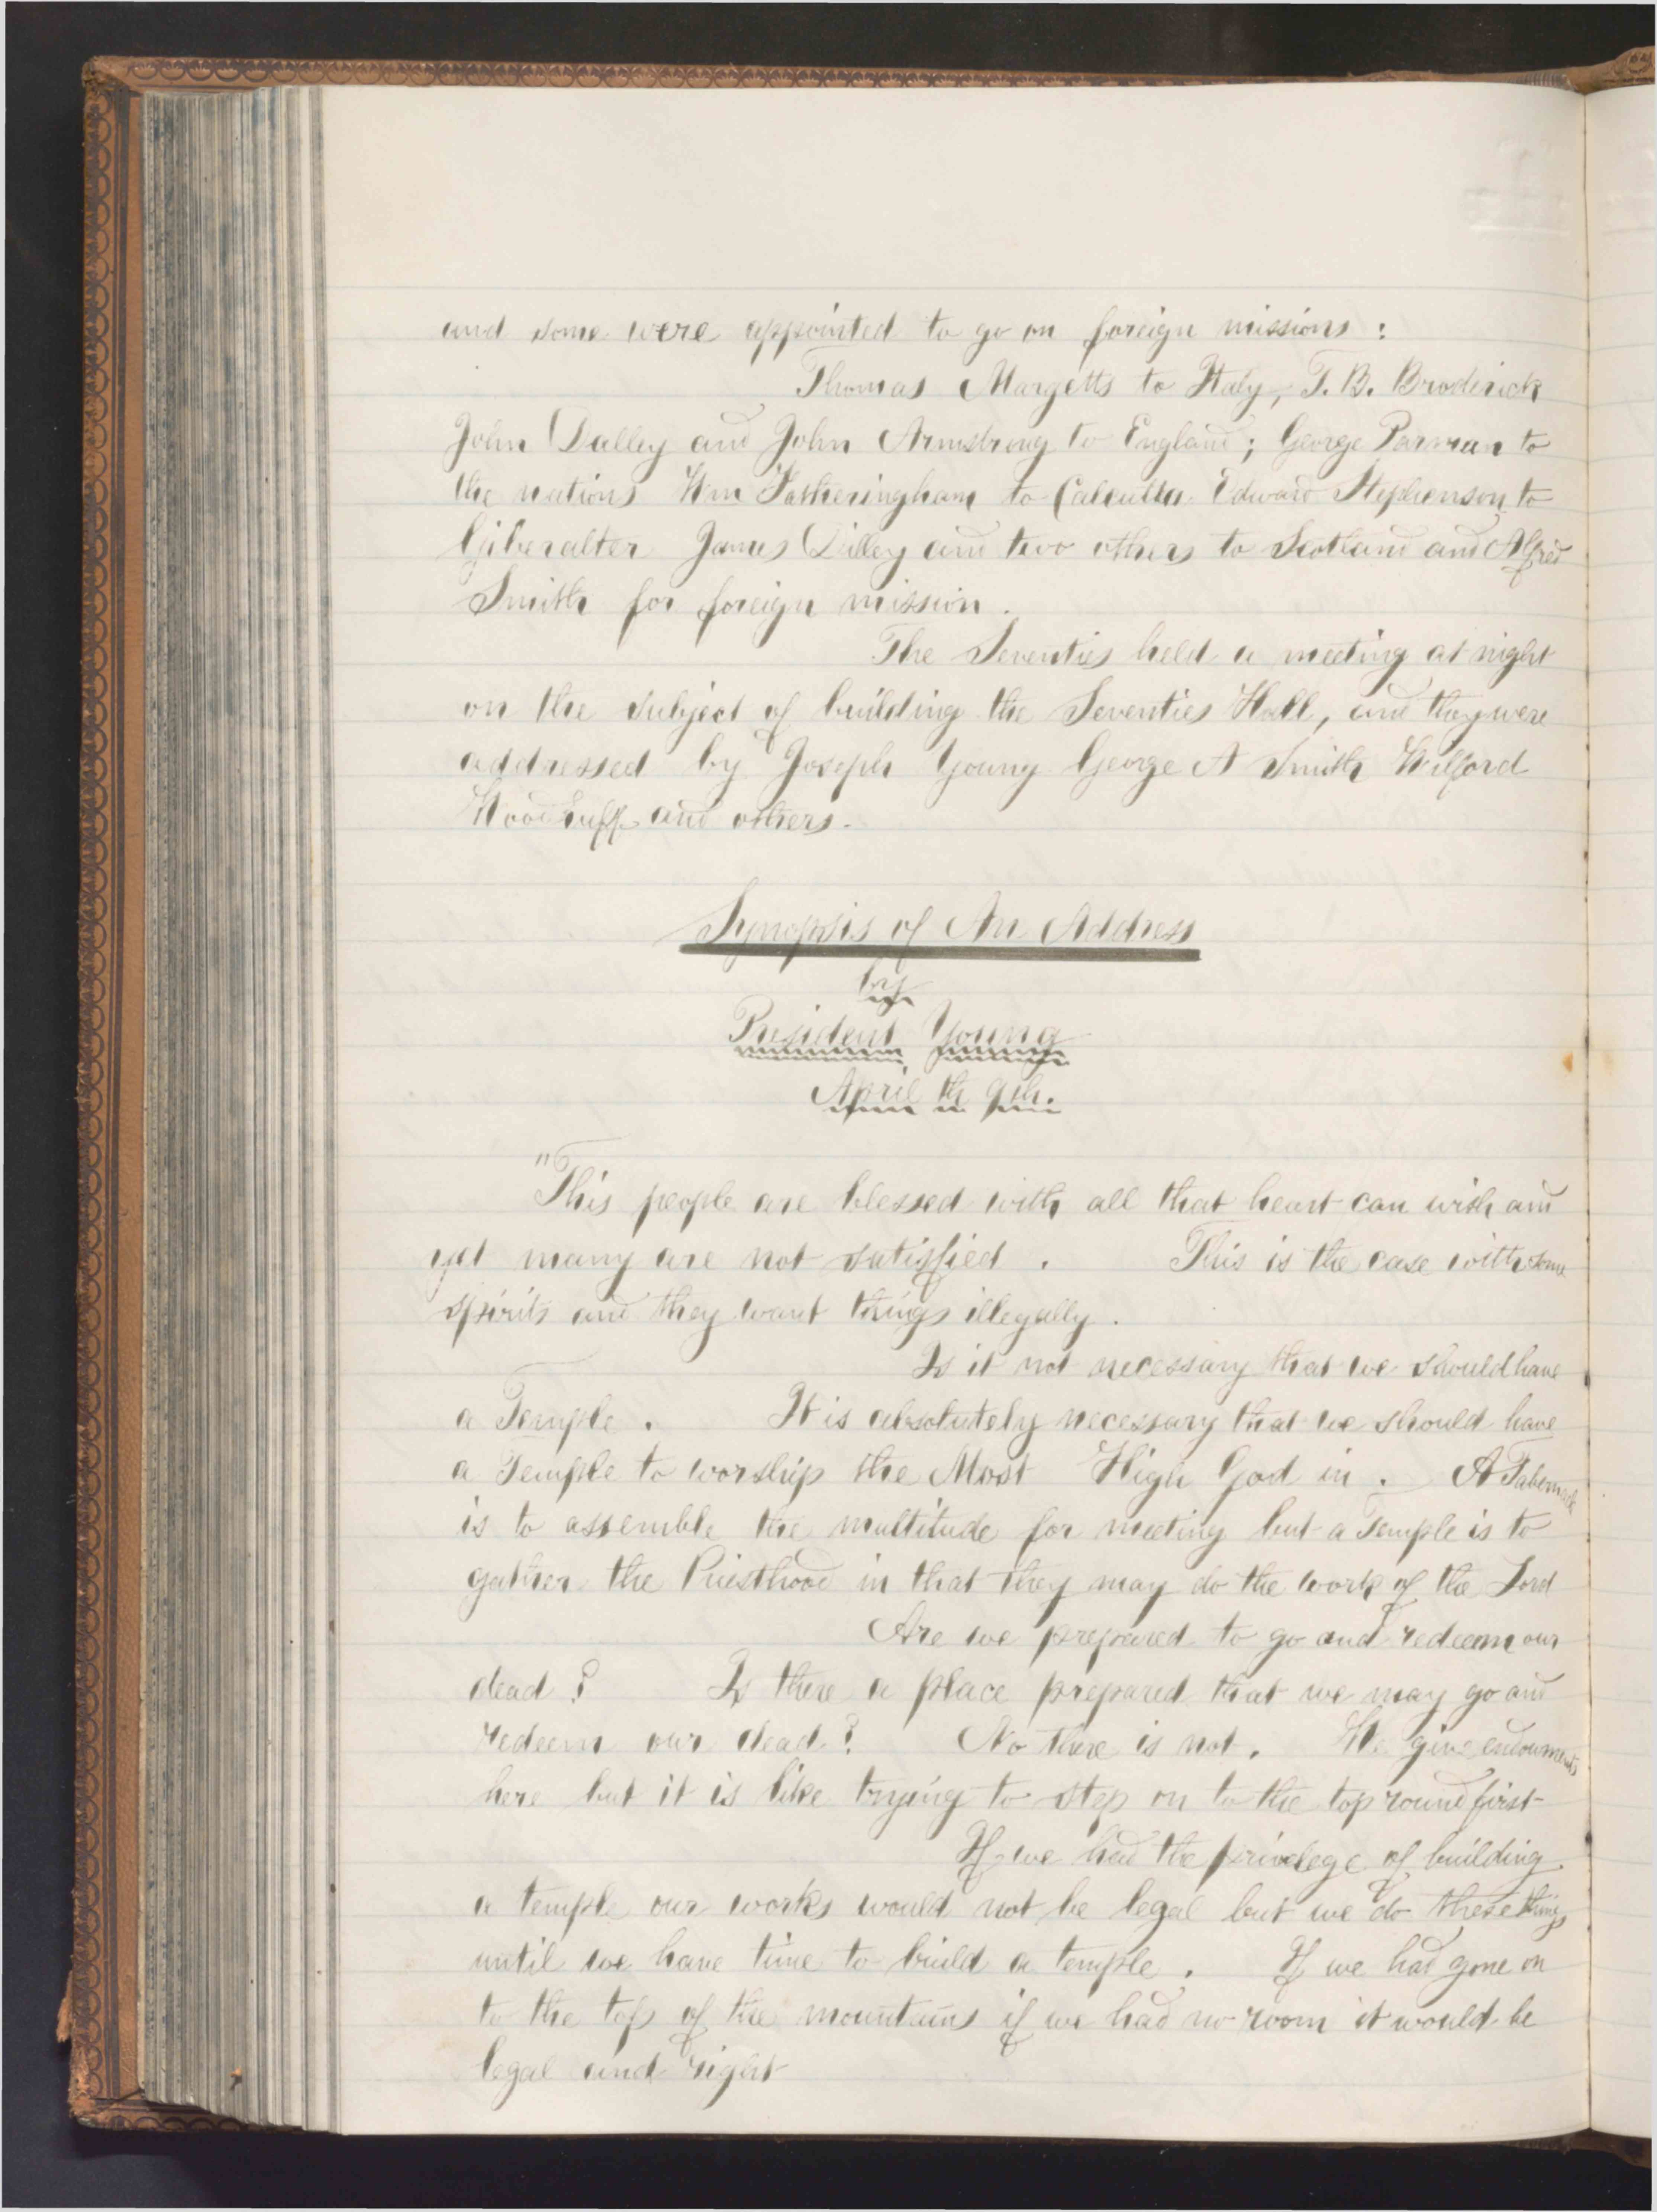 and some were appointed to go on foreign missions :
Thomas Margetts to Italy, T. B. Broderick
John Dalley and John Armstrong to England ; George Parman to
the nations Wm Fatheringham to Calcutta Edward Stephenson to
Giberalter James Dalley and two others to Scotland and Alfred
Smith for foreign mission .
The Seventies held a meeting at night
on the subject of building the Seventies Hall, and they were
addressed by Joseph Young George A Smith Wilford
Woodruff and others.
Synopsis of An Address
by
President Young
April th 9th.
"This people are blessed with all that heart can wish and
yet many are not satisfied . This is the case with some
spirits and they want things illegally .
Is it not necessary that we should have
a Temple . It is absolutely necessary that we should have
a Temple to worship the Most High God in . A Tabernacle
is to assemble the multitude for meeting but a Temple is to
gather the Priesthood in that they may do the work of the Lord
Are we prepared to go and redeem our
dead ? Is there a place prepared that we may go and
redeem our dead ? No there is not . We give endowments
here but it is like trying to step on to the top round first
If we had the privelege of building
a temple our works would not be legal but we do these things
until we have time to build a temple . If we had gone on
to the top of the mountains if we had no room it would be
legal and right